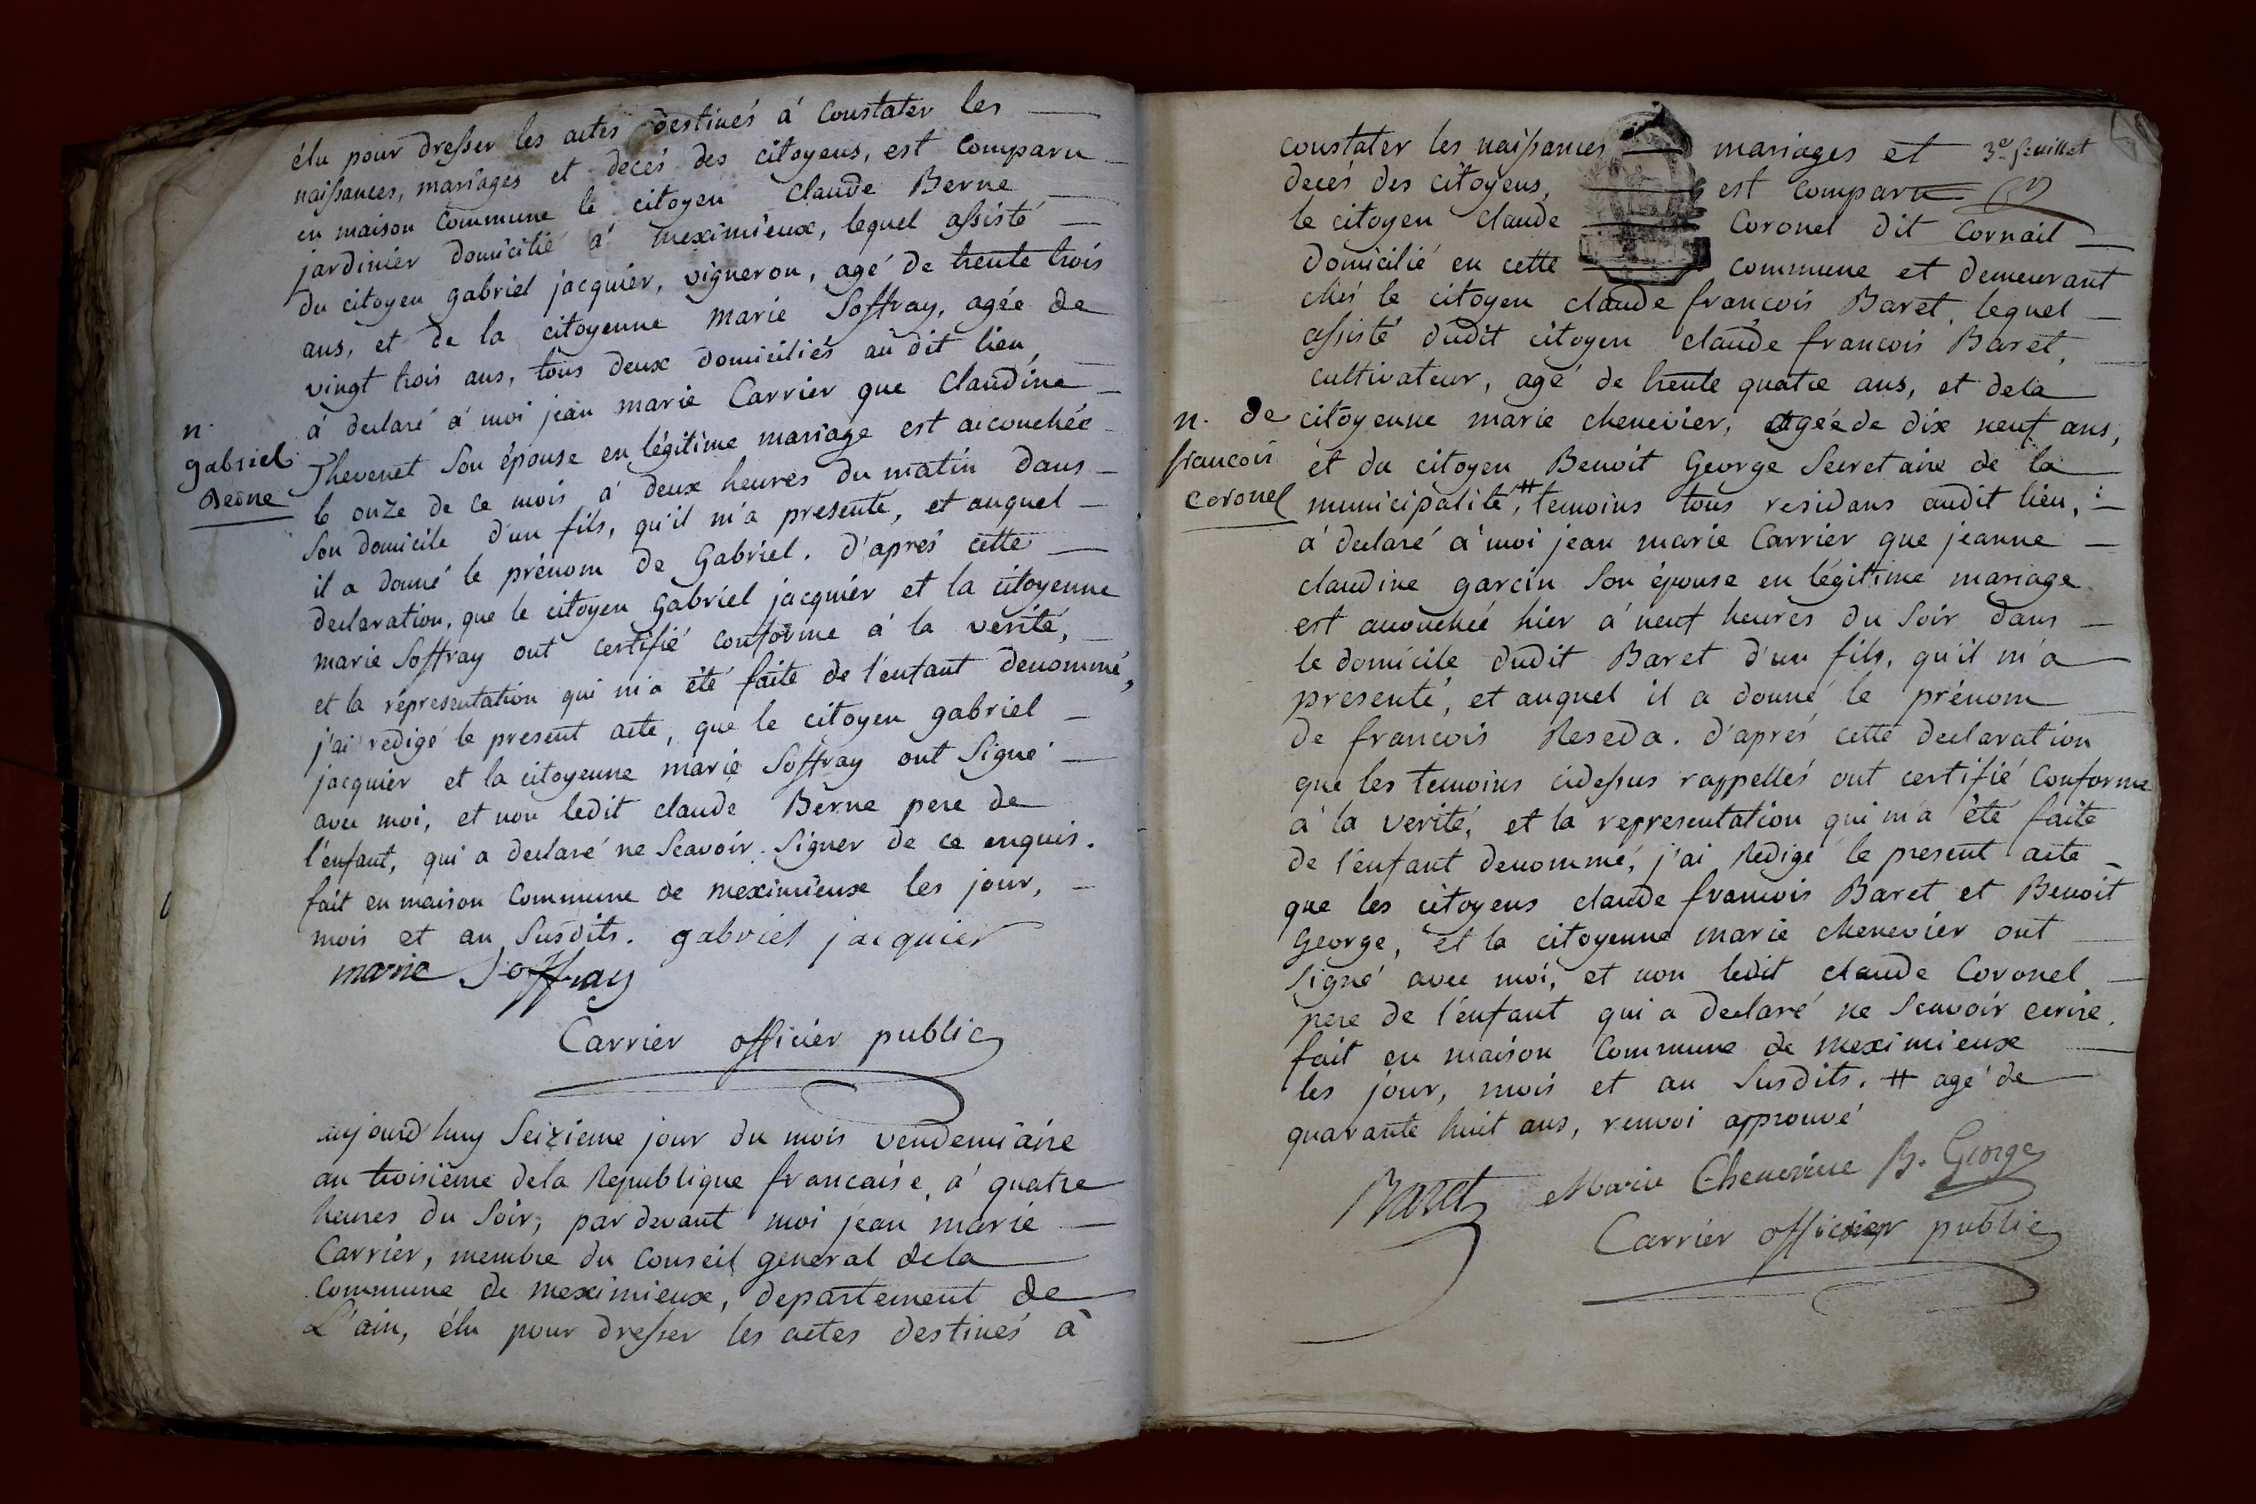 élu pour dresser les actes destinés à Constater les
naissances, mariages et decés des citoyens, est Comparu
en maison Commune le citoyen Claude Berne
jardinier domicilié à meximieux, lequel assisté
du citoyen gabriel jacquier, vigneron, agé de trente trois
ans, et de la citoyenne marie Soffray, agée de
vingt trois ans, tous deux domiciliés au dit lieu,
à declaré à moi jean marie Carrier que Claudine
n.
gabriel
Berne
Thevenet son épouse en légitime mariage est accouchée
le onze de ce mois à deux heures du matin dans
son domicile d'un fils, qu'il m'a presenté, et auquel
il a donné le prénom de Gabriel. d'aprés cette
declaration, que le citoyen Gabriel jacquier et la citoyenne
marie Soffray ont certifié conforme à la verité,
et la répresentation qui m'a été faite de l'enfant denommé,
j'ai redigé le present acte, que le citoyen gabriel
jacquier et la citoyenne marie Soffray ont signé
avec moi, et non ledit claude Berne pere de
l'enfant, qui a declaré ne sçavoir signer de ce enquis.
fait en maison Commune de meximieux les jour,
mois et an susdits. gabriel jacquier
marie Soffray
Carrier officier public
aujourd'huy seizieme jour du mois vendemiaire
an troisième dela Republique francaise, à quatre
heures du soir, par devant moi jean marie
Carrier, membre du Conseil general dela
Commune de meximieux, departement de
L'ain, élu pour dresser les actes destinés à
3e. feuillet
constater les naissances mariages et
decés des citoyens, est comparu
le citoyen claude Coronel dit Cornait
domicilié en cette commune et demeurant
chés le citoyen claude françois Baret, lequel
assisté dudit citoyen claude francois Baret,
cultivateur, agé de trente quatre ans, et dela
n. de
francois
coronel
citoyenne marie chenevier, agée de dix neuf ans,
et du citoyen Benoit George Secretaire de la
municipalité, # temoins tous residans audit lieu,
à declaré à moi jean marie Carrier que jeanne
claudine garcin son épouse en légitime mariage
est accouchée hier à neuf heures du soir dans
le domicile dudit Baret d'un fils, qu'il m'a
presenté, et auquel il a donné le prénom
de francois Reseda. d'aprés cette declaration
que les temoins cidessus rappellés ont certifié Conforme
à la verité, et la representation qui m'a été faite
de l'enfant denommé, j'ai Redigé le present acte
que les citoyens claude francois Baret et Benoit
George, et la citoyenne marie chenevier ont
signé avec moi, et non ledit claude Coronel
pere de l'enfant qui a declaré ne sçavoir ecrire.
fait en maison Commune de meximieux
les jour, mois et an susdits. # agé de
quarante huit ans, renvoi approuvé
Baret Marie Cheneviere B. George
Carrier officier public